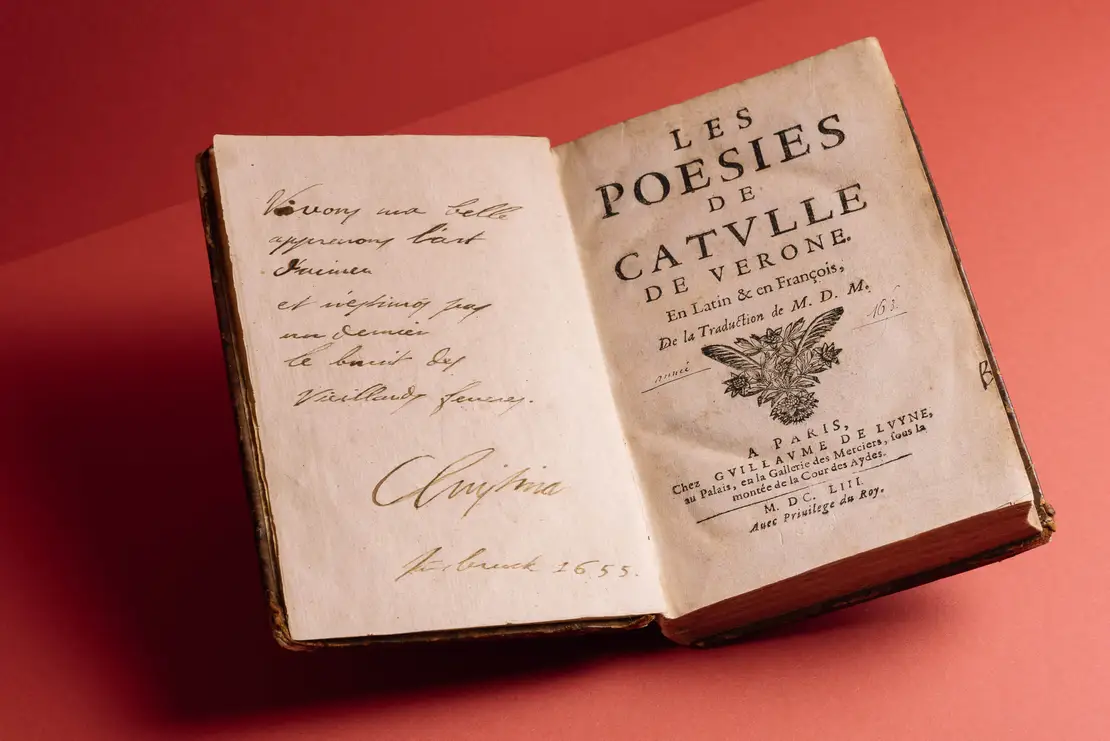 Vivons ma belle
apprenons l'art
d'aimer
et n'estimos pas
un denier
le bruit des
Vieillards severes.
Christina
Insbruck 1655.
LES
POESIES
DE
CATVLLE
DE VERONE.
En Latin & en François,
De la Traduction de M. D. M.
année 165
B
A PARIS,
Chez GVILLAVME DE LVYNE,
au Palais, en la Gallerie des Merciers, sous la
montée de la Cour des Aydes.
M. DC. LIII.
Auec Priuilege du Roy.